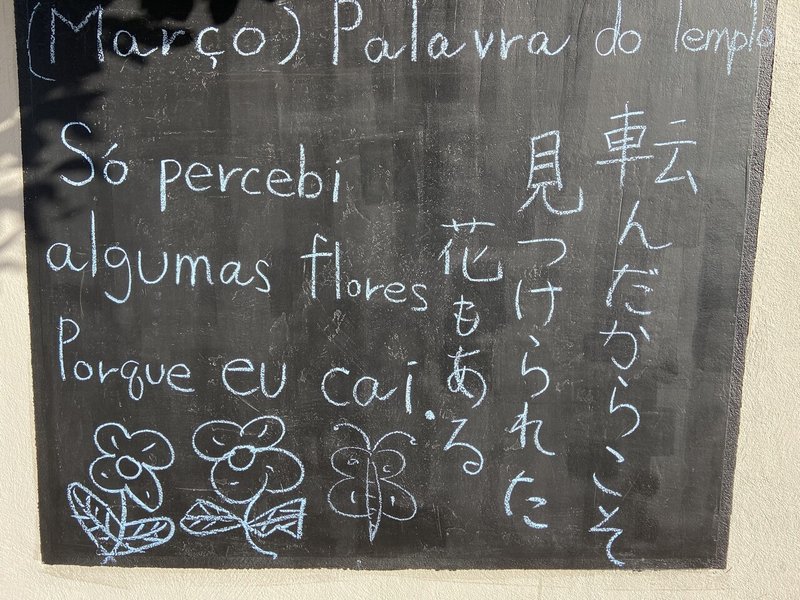 (Março) Palavra do Templo
Só percebi
algumas flores
Porque eu cai.
転んだからこそ
見つけられた
花もある